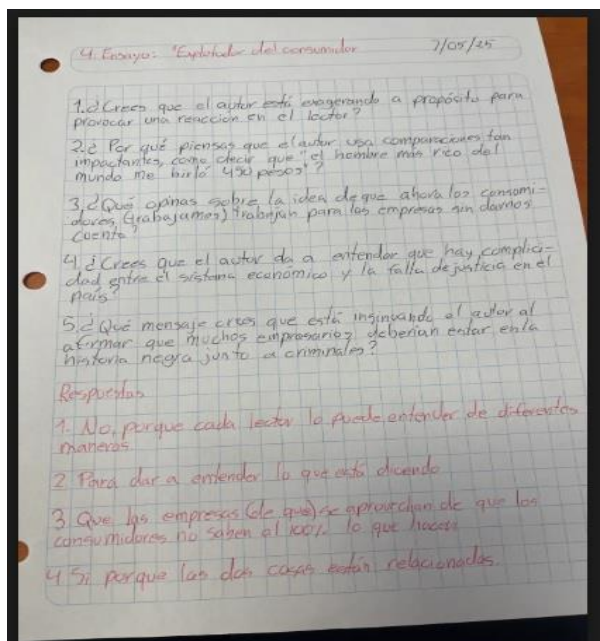 4. Ensayo: "Explotador del consumidor 7/05/25
1. ¿Crees que el autor está exagerando a propósito para
provocar una reacción en el lector?
2. ¿Por qué piensas que el autor usa comparaciones tan
impactantes, como decir que "el hombre más rico del
mundo me birló 450 pesos"?
3. ¿Qué opinas sobre la idea de que ahora los consumi-
dores (trabajamos) trabajan para las empresas sin darnos
cuenta?
4. ¿Crees que el autor da a entender que hay complici-
dad entre el sistema económico y la falla de justicia en el
país?
5. ¿Qué mensaje crees que está insinuando el autor al
afirmar que muchos empresarios deberían estar en la
historia negra junto a criminales?
Respuestas
1. No, porque cada lector lo puede entender de diferentes
maneras.
2 Para dar a entender lo que está diciendo
3 Que las empresas (de que) se aprovechan de que los
consumidores no saben al 100% lo que hacen
4 Si porque las dos cosas están relacionadas.